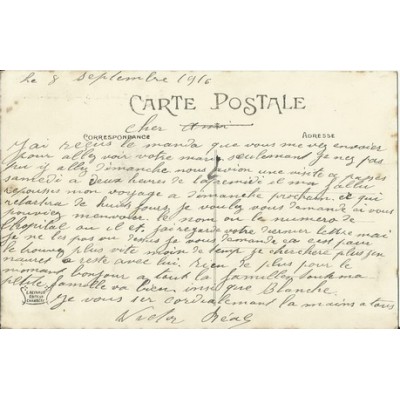 Le 8 septembre 1916
CARTE POSTALE
CORRESPONDANCE
ADRESSE
cher Ami
J'ai reçus le manda que vous me vez envoier
pour allez voir votre mari seulemant je nez pas
pue y allez dimanche nous avion une visite a passes
samedi a deux heures de l'apremidi il ma fallu
repousser mon voyage a dimanche prochain ce qui
retartra de huit jours je voulez vous demandé si vous
pouviez menvoier le nom ou la numero de
lhopital ou il est j'ai regardé votre dernier lettre mai
je ne les pas vu dessus je vous demande ca cest pour
le trouvez plus vite moin de temp je chercheré plus jen
naures a resté avec lui, rien de plus pour le
momant bonjour a tout la famille toute ma
petite famille va bien insi que Blanche
je vous ser cordialemant la mains a tous
Victor Réal